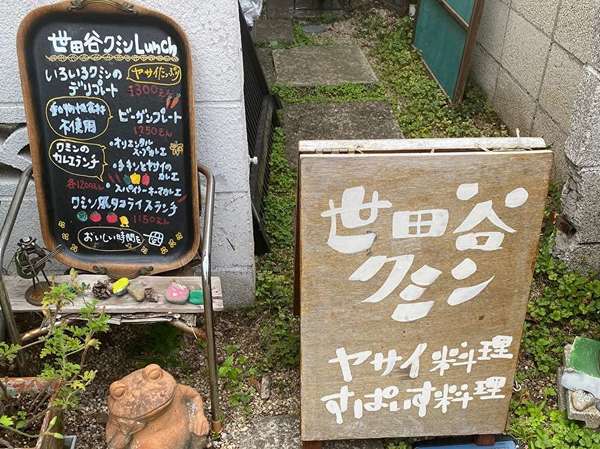 世田谷クミンLunch
いろいろクミンの
デリプレート
ヤサイたっぷり
1300えん
動物性食材
不使用
ビーガンプレート
1250えん
クミンの
カレーランチ
・オリエンタル
スープカレー
・チキンとヤサイの
カレー
・スパイシーキーマカレー
各1200えん
クミン風タコライスランチ
1150えん
おいしい時間を
世田谷
クミン
ヤサイ料理
すぱいす料理